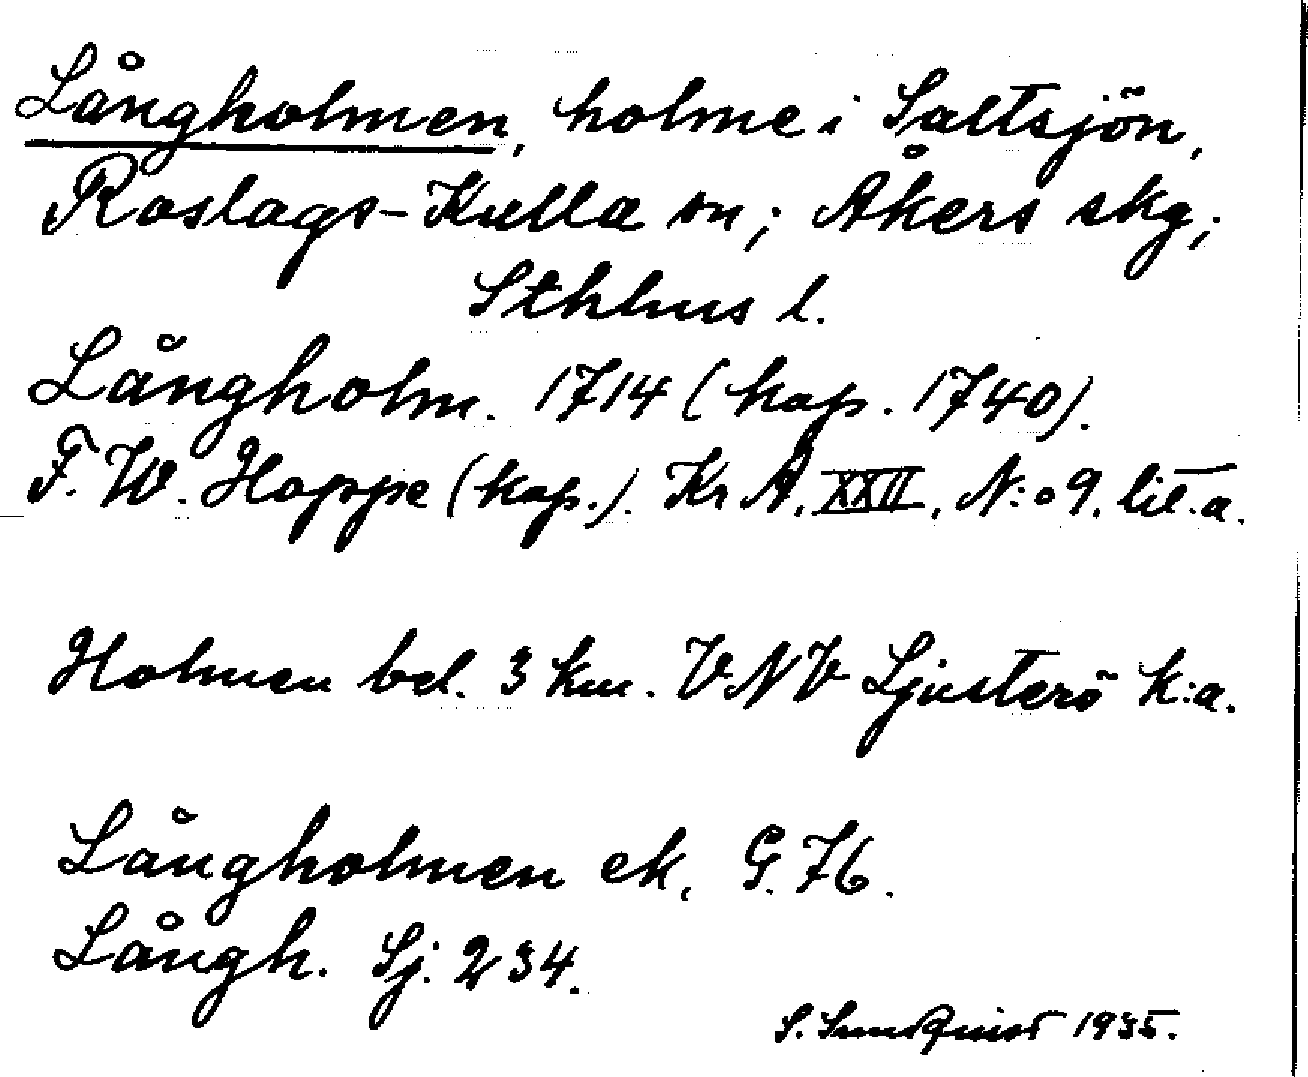 Långholmen, holme i Saltsjön,
Roslags-Kulla sn; Åkers skg;
Sthlms l.
Långholm. 1714 (kop. 1740).
F. W. Hoppe (kop.). Kr A. XXII, N:o 9. lit. a.
Holmen bel. 3 km. VNV Ljusterö k:a.
Långholmen ek. G. 76.
Långh. Sj. 234.
S. Sundquist 1935.